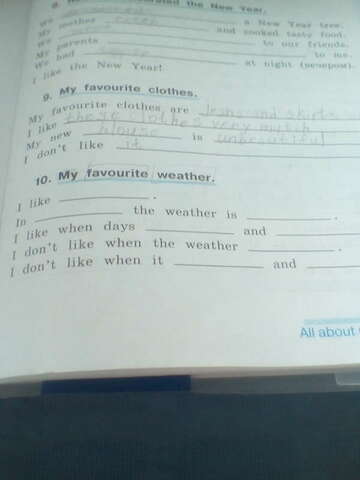 the New Year.
My mother ____ a New Year tree.
We ____ and cooked tasty food.
My parents ____ to our friends.
We had ____ to me.
I like the New Year! at night (вечером).
9. My favourite clothes.
My favourite clothes are jeans and skirts
I like these clothes very much
My new blouse is unbeautiful
I don't like it
10. My favourite weather.
I like ____ .
In ____ the weather is ____ .
I like when days ____ and ____
I don't like when the weather ____ .
I don't like when it ____ and ____
All about